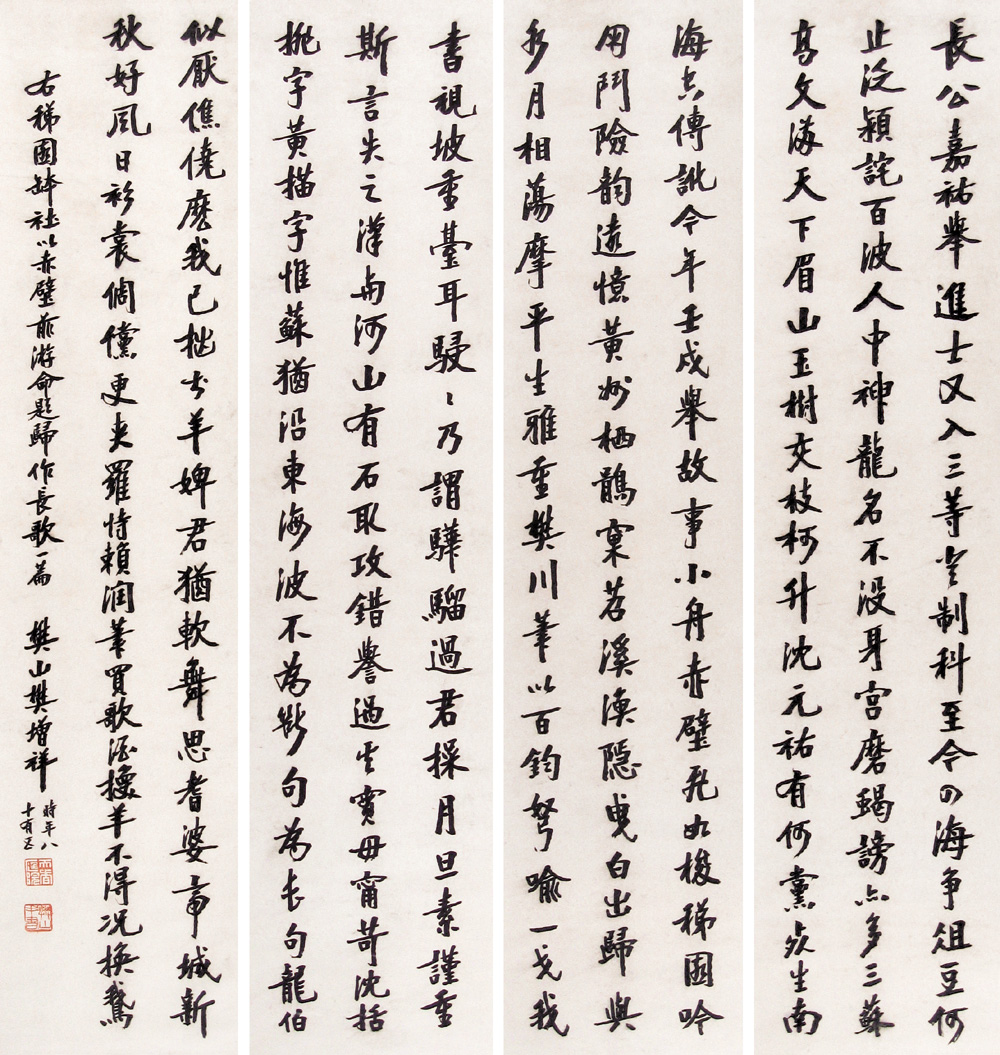 長公嘉祐舉進士又入三等空制科至今四海爭俎豆何
止泛穎詫百波人中神龍名不沒身宮磨蝎謗亦多三蘇
高文滿天下眉山玉樹交枝柯升沈元祐有何黨於生南
海亦傳訛今年壬戌舉故事小舟赤壁飛如梭稊園吟
用鬥險韵遠憶黃州栖鶻窠若溪漁隱曳白出歸與
水月相蕩摩平生雅重樊川筆以百鈞弩喻一戈我
書視坡重臺耳駸々乃謂驊騮過君操月旦素謹重
斯言失之漢南河山有石取攻錯譽過其實毋甯苛沈括
挑字黃描字惟蘇猶沿東海波不為斷句為長句龍伯
似厭僬僥麽我已拙於羊婢君猶軟舞思耆婆帝城新
秋好風日衫裳倜儻更夹羅恃賴潤筆買歌酒換羊不得况換鵝
右稊園缽社以赤壁前游命題歸作長歌一篇 樊山樊增祥
時年八
十有五